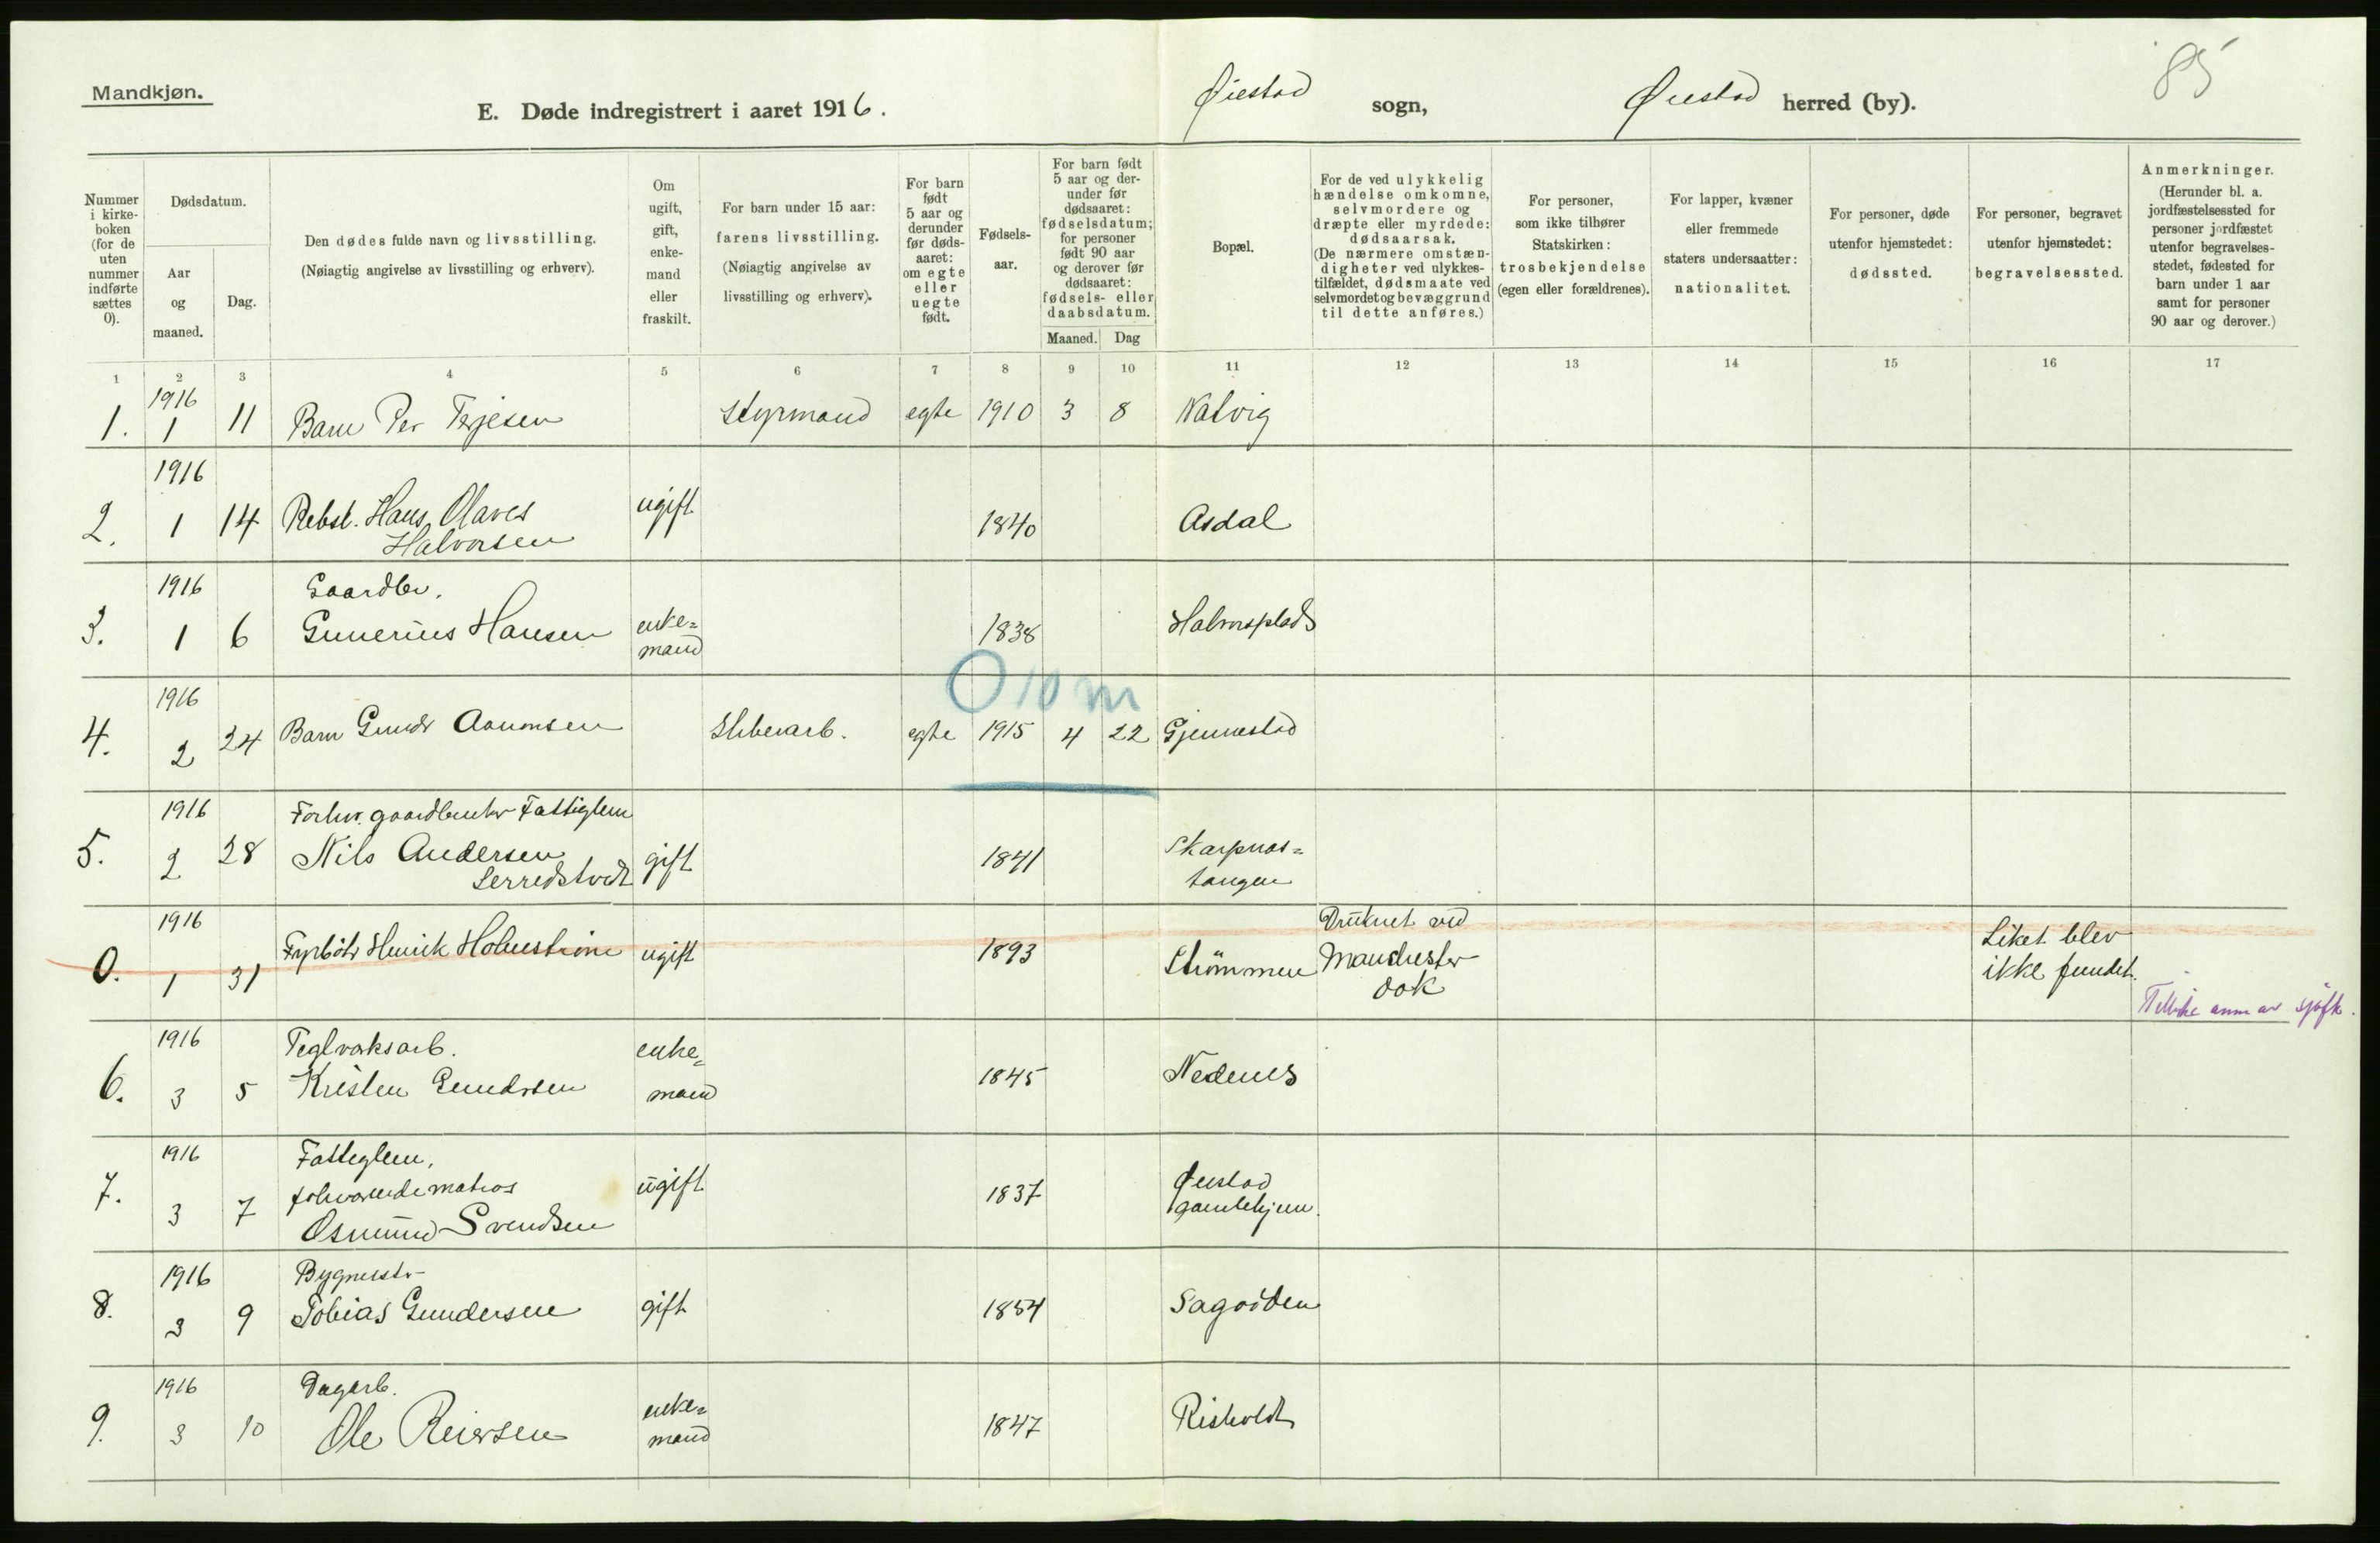 Mandkjøn.
85
E. Døde indregistrert i aaret 1916.
Øiestad sogn, Øiestad herred (by).
Nummer i kirke-boken (for de uten nummer indførte sættes 0).
Dødsdatum.
Aar og maaned.
Dag.
Den dødes fulde navn og livsstilling.
(Nøiagtig angivelse av livsstilling og erhverv).
Om ugift, gift, enke-mand eller fraskilt.
For barn under 15 aar: farens livsstilling.
(Nøiagtig angivelse av livsstilling og erhverv).
For barn født 5 aar og derunder før døds-aaret: om egte eller uegte født.
Fødsels-aar.
For barn født 5 aar og der-under før dødsaaret: fødselsdatum; for personer født 90 aar og derover før dødsaaret: fødsels- eller daabsdatum.
Maaned. Dag
Bopæl.
For de ved ulykkelig hændelse omkomne, selvmordere og dræpte eller myrdede: dødsaarsak.
(De nærmere omstæn-digheter ved ulykkes-tilfældet, dødsmaate ved selvmordet og bevæggrund til dette anføres.)
For personer, som ikke tilhører Statskirken: trosbekjendelse (egen eller forældrenes).
For lapper, kvæner eller fremmede staters undersaatter: nationalitet.
For personer, døde utenfor hjemstedet: dødssted.
For personer, begravet utenfor hjemstedet: begravelsessted.
Anmerkninger.
(Herunder bl. a. jordfæstelsessted for personer jordfæstet utenfor begravelses-stedet, fødested for barn under 1 aar samt for personer 90 aar og derover.)
1 2 3 4 5 6 7 8 9 10 11 12 13 14 15 16 17
1916
1. 1 11 Barn Per Terjesen Styrmand egte 1910 3 8 Natvig
1916
2. 1 14 Rebsl. Hans Olaves ugift 1840 Asdal
Halvorsen
1916 Gaardbr.
3. 1 6 Gunerius Hansen enke= 1838 Halvorsplads
mand
0 10 m
1916
4. 2 24 Barn Gundr Aanonsen Sliberarb. egte 1915 4 22 Gjennestad
1916 Forhv. gaardbruker Fattiglem
5. 2 28 Nils Andersen gift 1841 Skarpnes=
Serredstvedt tangen
1916 Druknet ved
0. 1 31 Fyrbøter Henrik Holmstrøm ugift 1893 Strömmen Manchester Liket blev
dok ikke fundet.
sjöfk.
1916 Teglverksarb. enke=
6. 3 5 Kristen Gundersen mand 1845 Nedenes
1916 Fattiglem,
7. 3 7 forhværende matros ugift 1837 Øiestad
Osmund Svendsen gamlehjem.
1916 Bygmester
8. 3 9 Tobias Gundersen gift 1854 Sagöden
1916 Dagarb.
9. 3 10 Ole Reiersen enke= 1847 Risholdt
mand